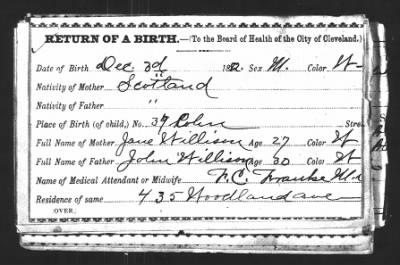 RETURN OF A BIRTH.—(To the Board of Health of the City of Cleveland.)
Date of Birth Dec. 3d 188 Sex M. Color W
Nativity of Mother Scotland
Nativity of Father "
Place of Birth (of child,) No. 37 Stre
Full Name of Mother Jane Willison Age 27 Color W
Full Name of Father John Willison Age 30 Color W
Name of Medical Attendant or Midwife F. C.
Residence of same 435 Woodland ave
OVER.